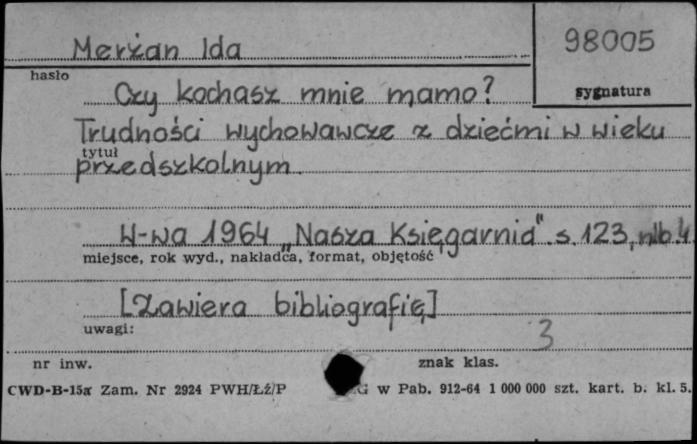 Merżan Ida
98005
hasło
sygnatura
Czy kochasz mnie mamo?
Trudności wychowawcze z dziećmi w wieku
tytuł
przedszkolnym.
W-wa 1964 „Nasza Księgarnia" s. 123, nlb. 4
miejsce, rok wyd., nakładca, format, objętość
[Zawiera bibliografię]
uwagi:
3
nr inw.
znak klas.
CWD-B-15a Zam. Nr 2924 PWH/Łź/P G w Pab. 912-64 1 000 000 szt. kart. b. kl. 5.